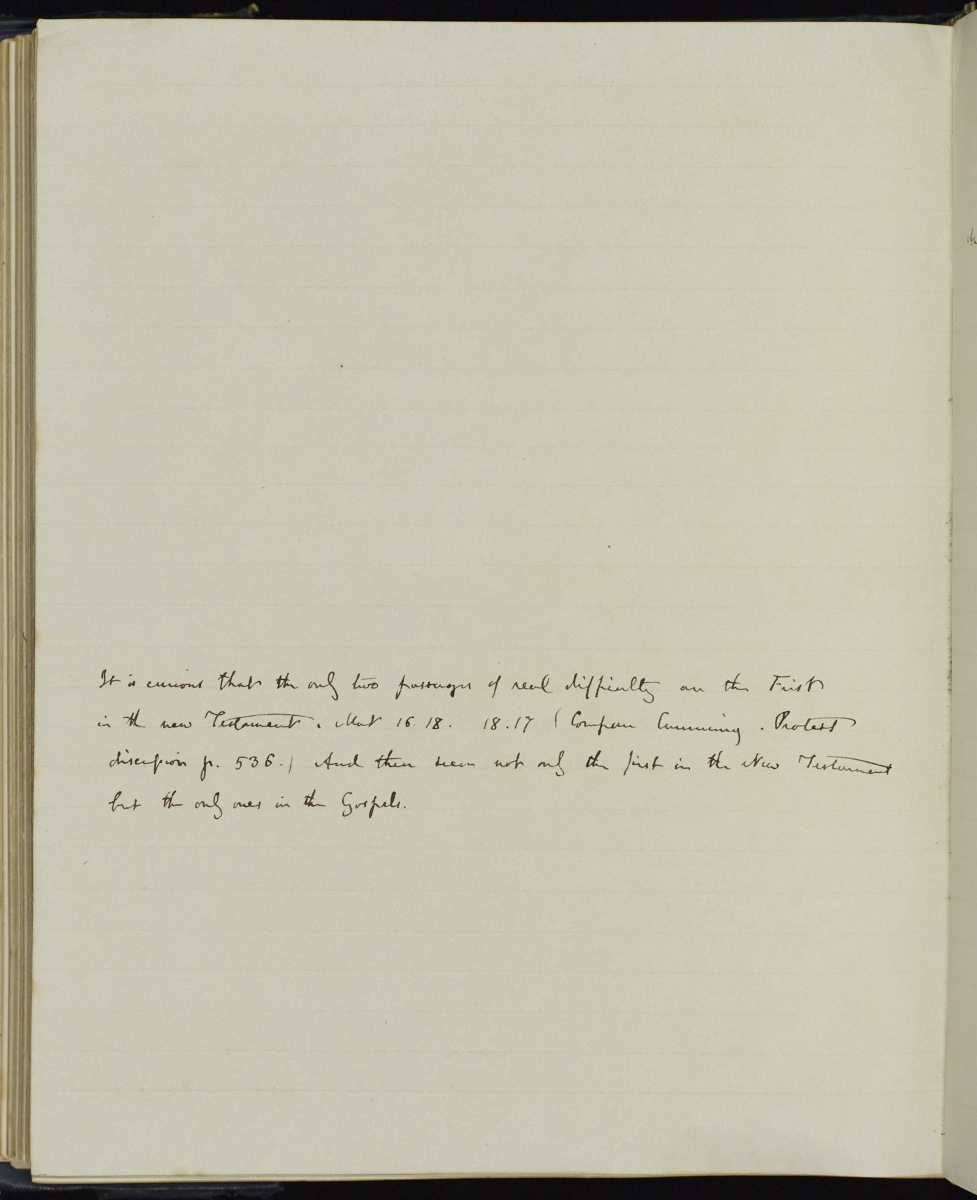 It is curious that the only two passages of real difficulty are the First
in the new Testament. Mat 16.18. 18.17 (Compare Cumming. Protest
discussion p. 536.) And these seem not only the first in the New Testament
but the only ones in the Gospels.